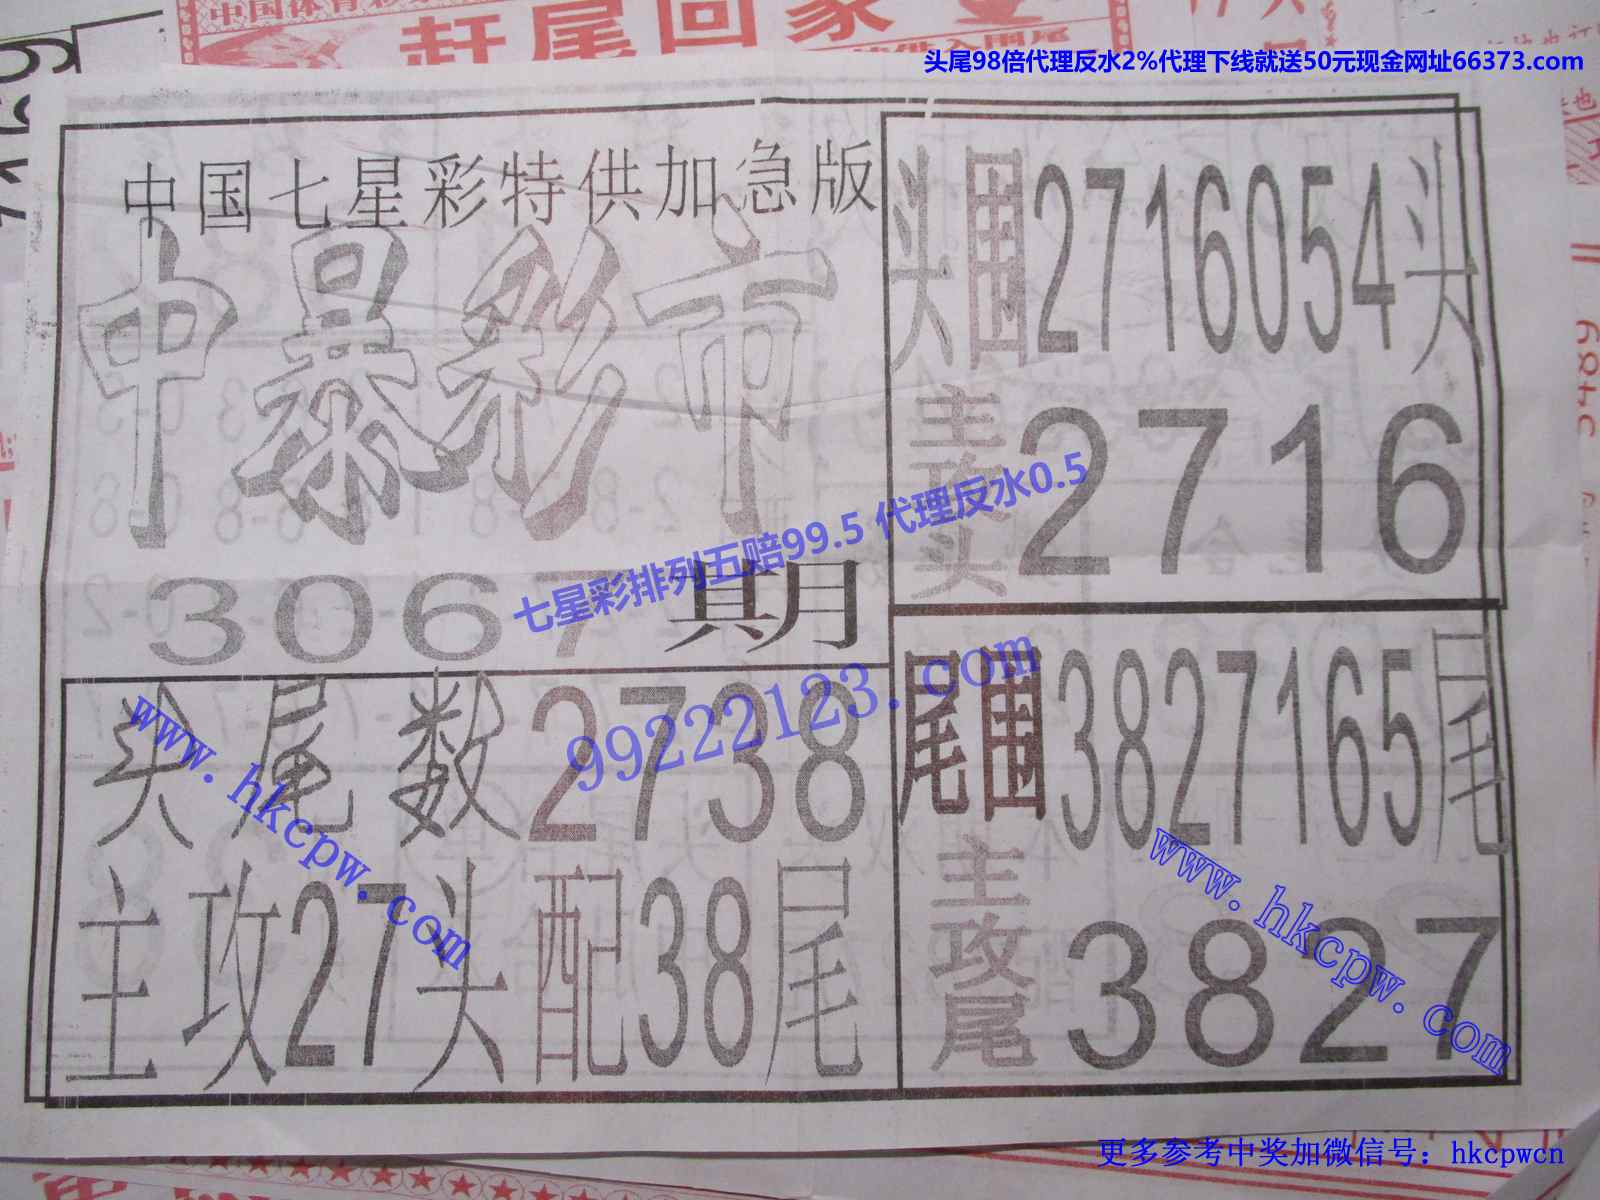 赶尾回家
头尾98倍代理反水2%代理下线就送50元现金网址66373.com
中国七星彩特供加急版
中暴彩市
3067期
头围2716054头
主攻头2716
七星彩排列五赔99.5 代理反水0.5
99222123.com
头尾数2738
主攻27头配38尾
尾围3827165尾
主攻尾3827
www.hkcpw.com
www.hkcpw.com
更多参考中奖加微信号：hkcpwcn